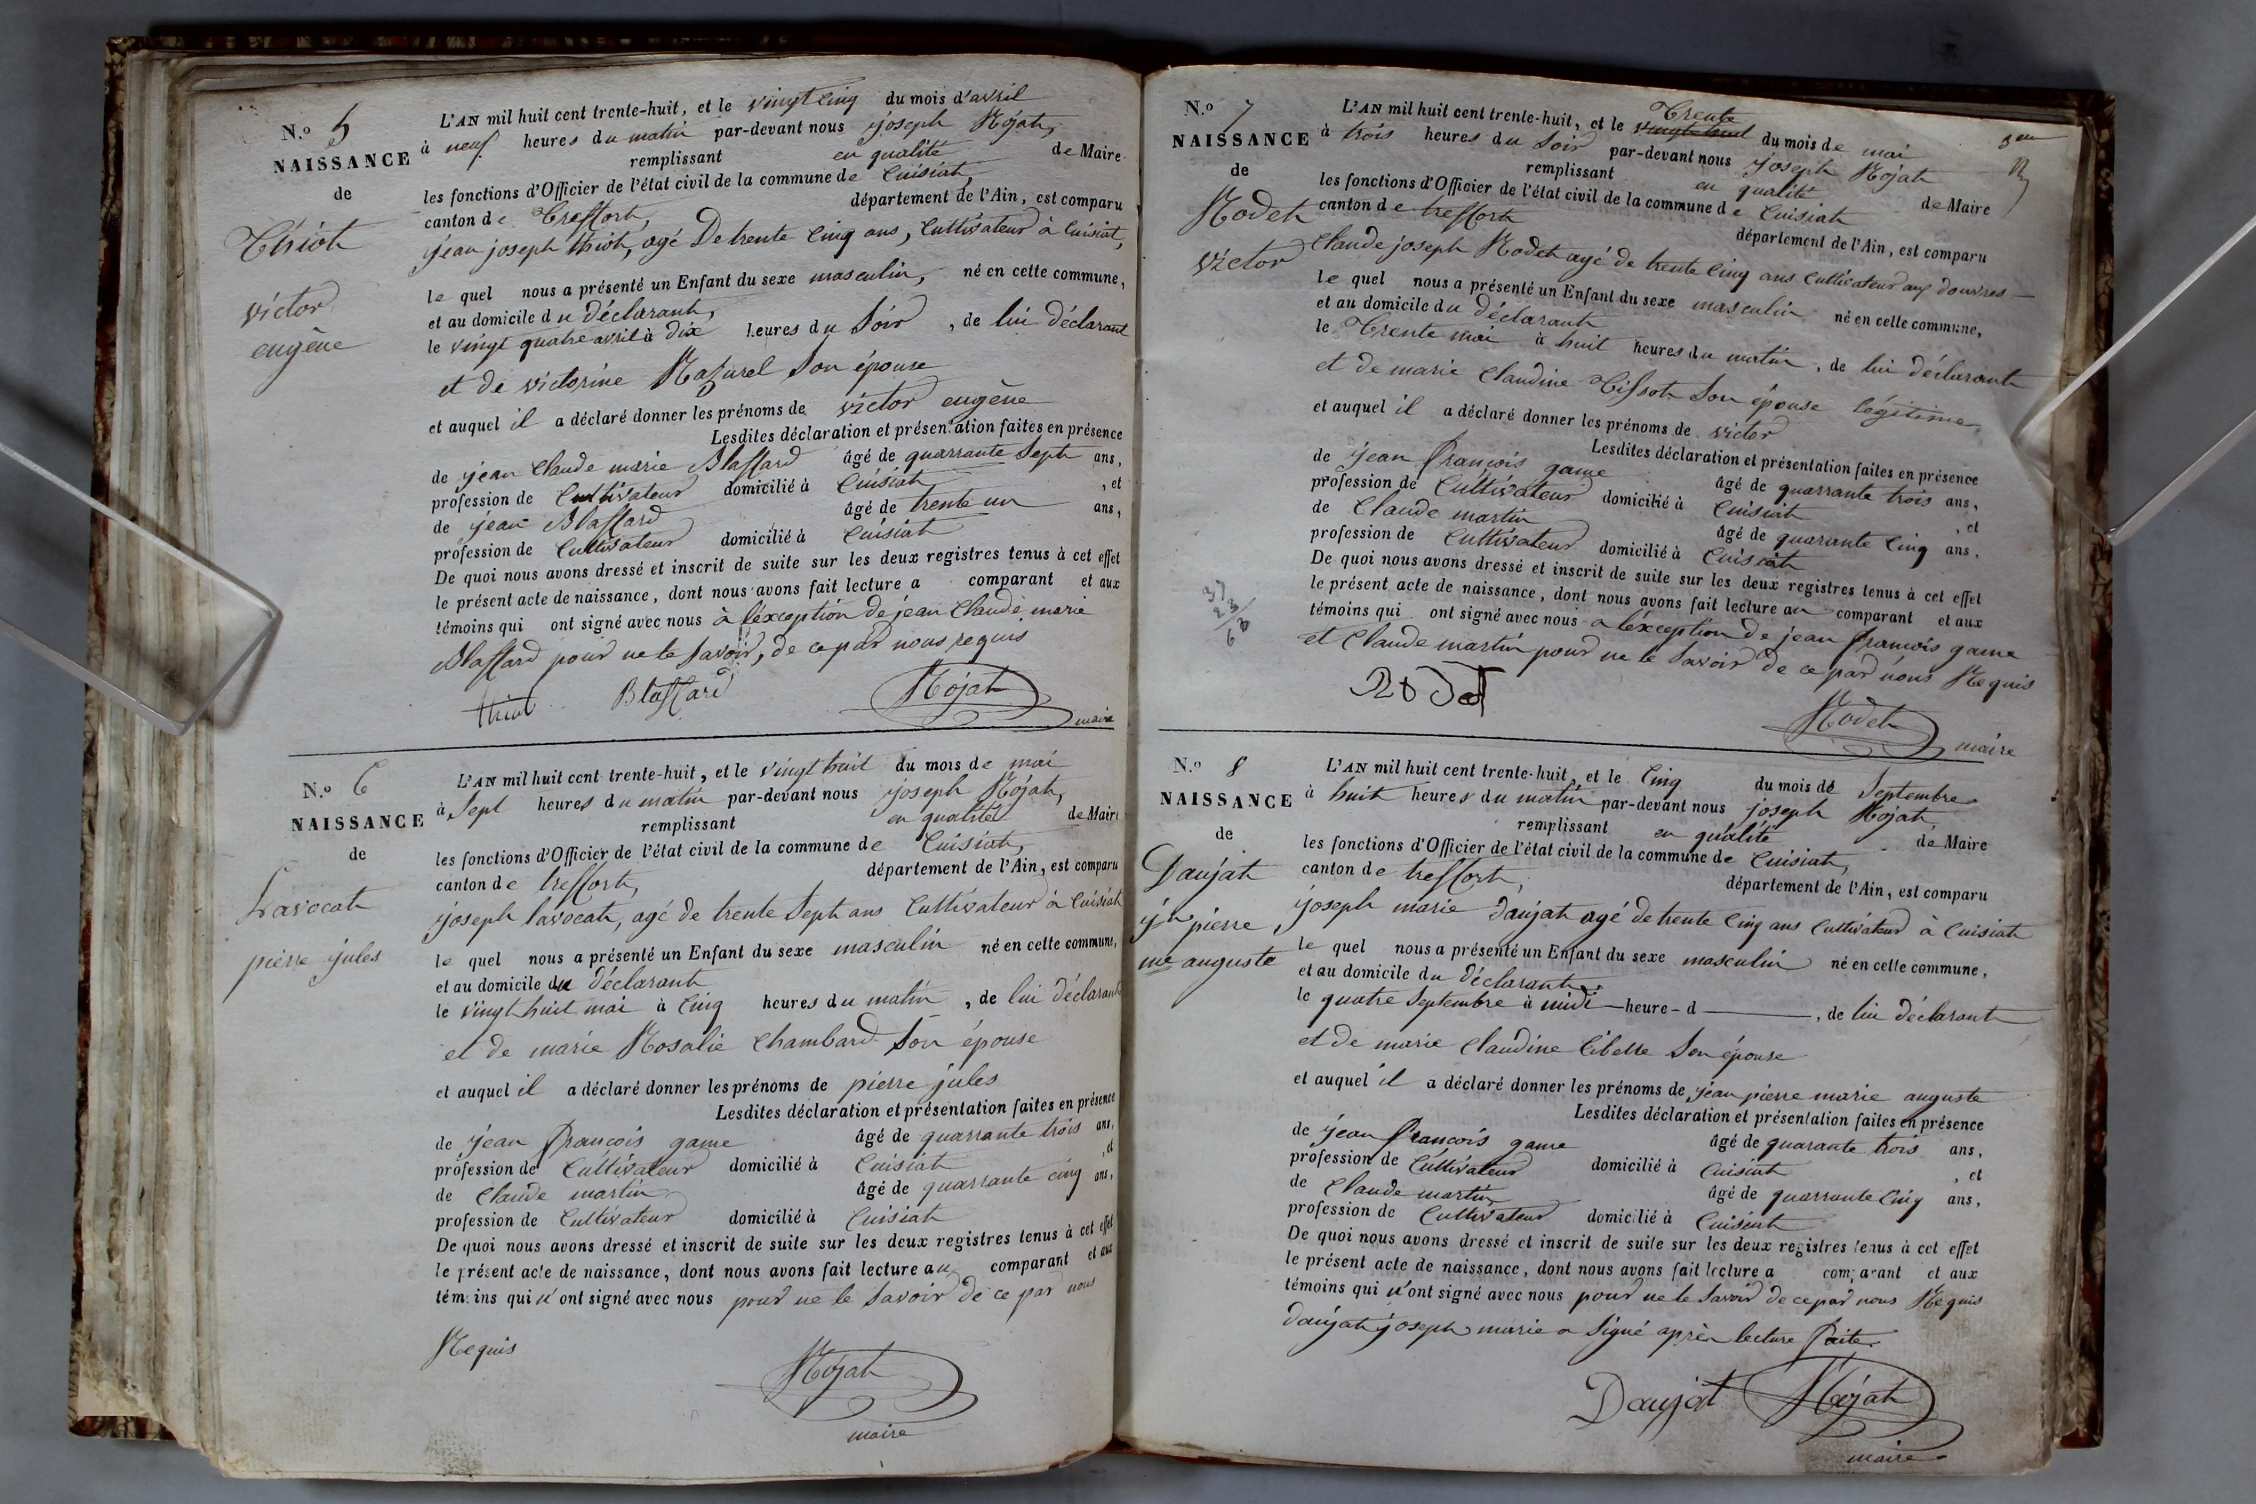 N.º 5
NAISSANCE
de
Thiot
victor
eugène
L'AN mil huit cent trente-huit, et le vingt cinq du mois d'avril
à neuf heures du matin par-devant nous joseph Rojat,
remplissant en qualité de Maire
les fonctions d'Officier de l'état civil de la commune de Cuisiat,
canton de Treffort, département de l'Ain, est comparu
jean joseph thiot, agé De trente cinq ans, Cultivateur à Cuisiat,
le quel nous a présenté un Enfant du sexe masculin, né en cette commune,
et au domicile du déclarant,
le vingt quatre avril à dix heures du Soir, de lui déclarant
et de victorine Mazurel Son épouse
et auquel il a déclaré donner les prénoms de victor eugène
Lesdites déclaration et présentation faites en présence
de jean Claude marie Blaffard âgé de quarrante Sept ans,
profession de Cultivateur domicilié à Cuisiat, et
de jean Blaffard âgé de trente un ans,
profession de Cultivateur domicilié à Cuisiat
De quoi nous avons dressé et inscrit de suite sur les deux registres tenus à cet effet
le présent acte de naissance, dont nous avons fait lecture a comparant et aux
témoins qui ont signé avec nous à l'exception de jean Claude marie
Blaffard pour ne le Savoir, de ce par nous requis
thiot Blaffard Rojat
maire
N.º 6
NAISSANCE
de
Lavocat
pierre jules
L'AN mil huit cent trente-huit, et le vingt huit du mois de mai
à Sept heures du matin par-devant nous joseph Rojat,
remplissant en qualité de Maire
les fonctions d'Officier de l'état civil de la commune de Cuisiat,
canton de treffort, département de l'Ain, est comparu
joseph lavocat, agé de trente Sept ans Cultivateur à Cuisiat
le quel nous a présenté un Enfant du sexe masculin né en cette commune,
et au domicile du déclarant
le vingt huit mai à Cinq heures du matin, de lui déclarant
et de marie Rosalie Chambard Son épouse
et auquel il a déclaré donner les prénoms de pierre jules
Lesdites déclaration et présentation faites en présence
de jean francois game âgé de quarrante trois ans,
profession de Cultivateur domicilié à Cuisiat, et
de Claude martin âgé de quarrante cinq ans,
profession de Cultivateur domicilié à Cuisiat
De quoi nous avons dressé et inscrit de suite sur les deux registres tenus à cet effet
le présent acte de naissance, dont nous avons fait lecture au comparant et aux
témoins qui n'ont signé avec nous pour ne le Savoir de ce par nous
Requis
Rojat
maire
N.º 7
NAISSANCE
de
Rodet
victor
37
28
68
Trente
L'AN mil huit cent trente-huit, et le vingt huit du mois de mai
à trois heures du Soir par-devant nous joseph Rojat
remplissant en qualité de Maire
les fonctions d'Officier de l'état civil de la commune de Cuisiat
canton de treffort département de l'Ain, est comparu
Claude joseph Rodet agé de trente cinq ans Cultivateur aux douvres
le quel nous a présenté un Enfant du sexe masculin né en cette commune,
et au domicile du déclarant
le Trente mai à huit heures du matin, de lui déclarant
et de marie Claudine Tissot Son épouse légitime
et auquel il a déclaré donner les prénoms de victor
Lesdites déclaration et présentation faites en présence
de jean françois game âgé de quarrante trois ans,
profession de Cultivateur domicilié à Cuisiat, et
de Claude martin âgé de quarante Cinq ans,
profession de Cultivateur domicilié à Cuisiat
De quoi nous avons dressé et inscrit de suite sur les deux registres tenus à cet effet
le présent acte de naissance, dont nous avons fait lecture au comparant et aux
témoins qui ont signé avec nous a l'éxception de jean françois game
et Claude martin pour ne le Savoir de ce par nous Requis
Rodet
Rodet
maire
N.º 8
NAISSANCE
de
Daujat
jn pierre
me auguste
L'AN mil huit cent trente-huit, et le Cinq du mois de Septembre
à huit heures du matin par-devant nous joseph Rojat
remplissant en qualité de Maire
les fonctions d'Officier de l'état civil de la commune de Cuisiat,
canton de treffort, département de l'Ain, est comparu
joseph marie daujat agé de trente Cinq ans Cultivateur à Cuisiat
le quel nous a présenté un Enfant du sexe masculin né en cette commune,
et au domicile du déclarant
le quatre Septembre à midi heure d, de lui déclarant
et de marie Claudine Cibelle Son épouse
et auquel il a déclaré donner les prénoms de jean pierre marie auguste
Lesdites déclaration et présentation faites en présence
de jean francois game âgé de quarante trois ans,
profession de Cultivateur domicilié à Cuisiat, et
de Claude martin âgé de quarrante Cinq ans,
profession de Cultivateur domicilié à Cuisiat
De quoi nous avons dressé et inscrit de suite sur les deux registres tenus à cet effet
le présent acte de naissance, dont nous avons fait lecture a comparant et aux
témoins qui n'ont signé avec nous pour ne le Savoir de ce par nous Requis
daujat joseph marie a Signé après lecture faite
Daujat Rojat
maire